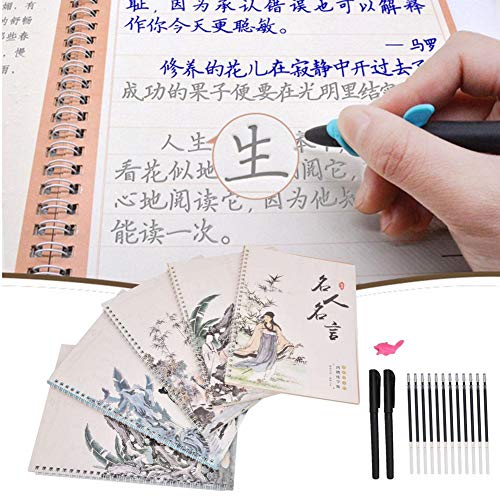 耻，因为承认错误也可以解释
作你今天更聪敏。
— 马罗
修养的花儿在寂静中开过去了
成功的果子便要在光明里结
人生
看花似地 阅它，
心地阅读它，因为他知
能读一次。
生
有
的舒畅
那些春
慢
名人
名言